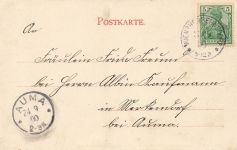 POSTKARTE.
5 5
An
Fräulein Frida
bei Herrn Albin Kaufmann
in Merkendorf
bei Auma.
AUMA